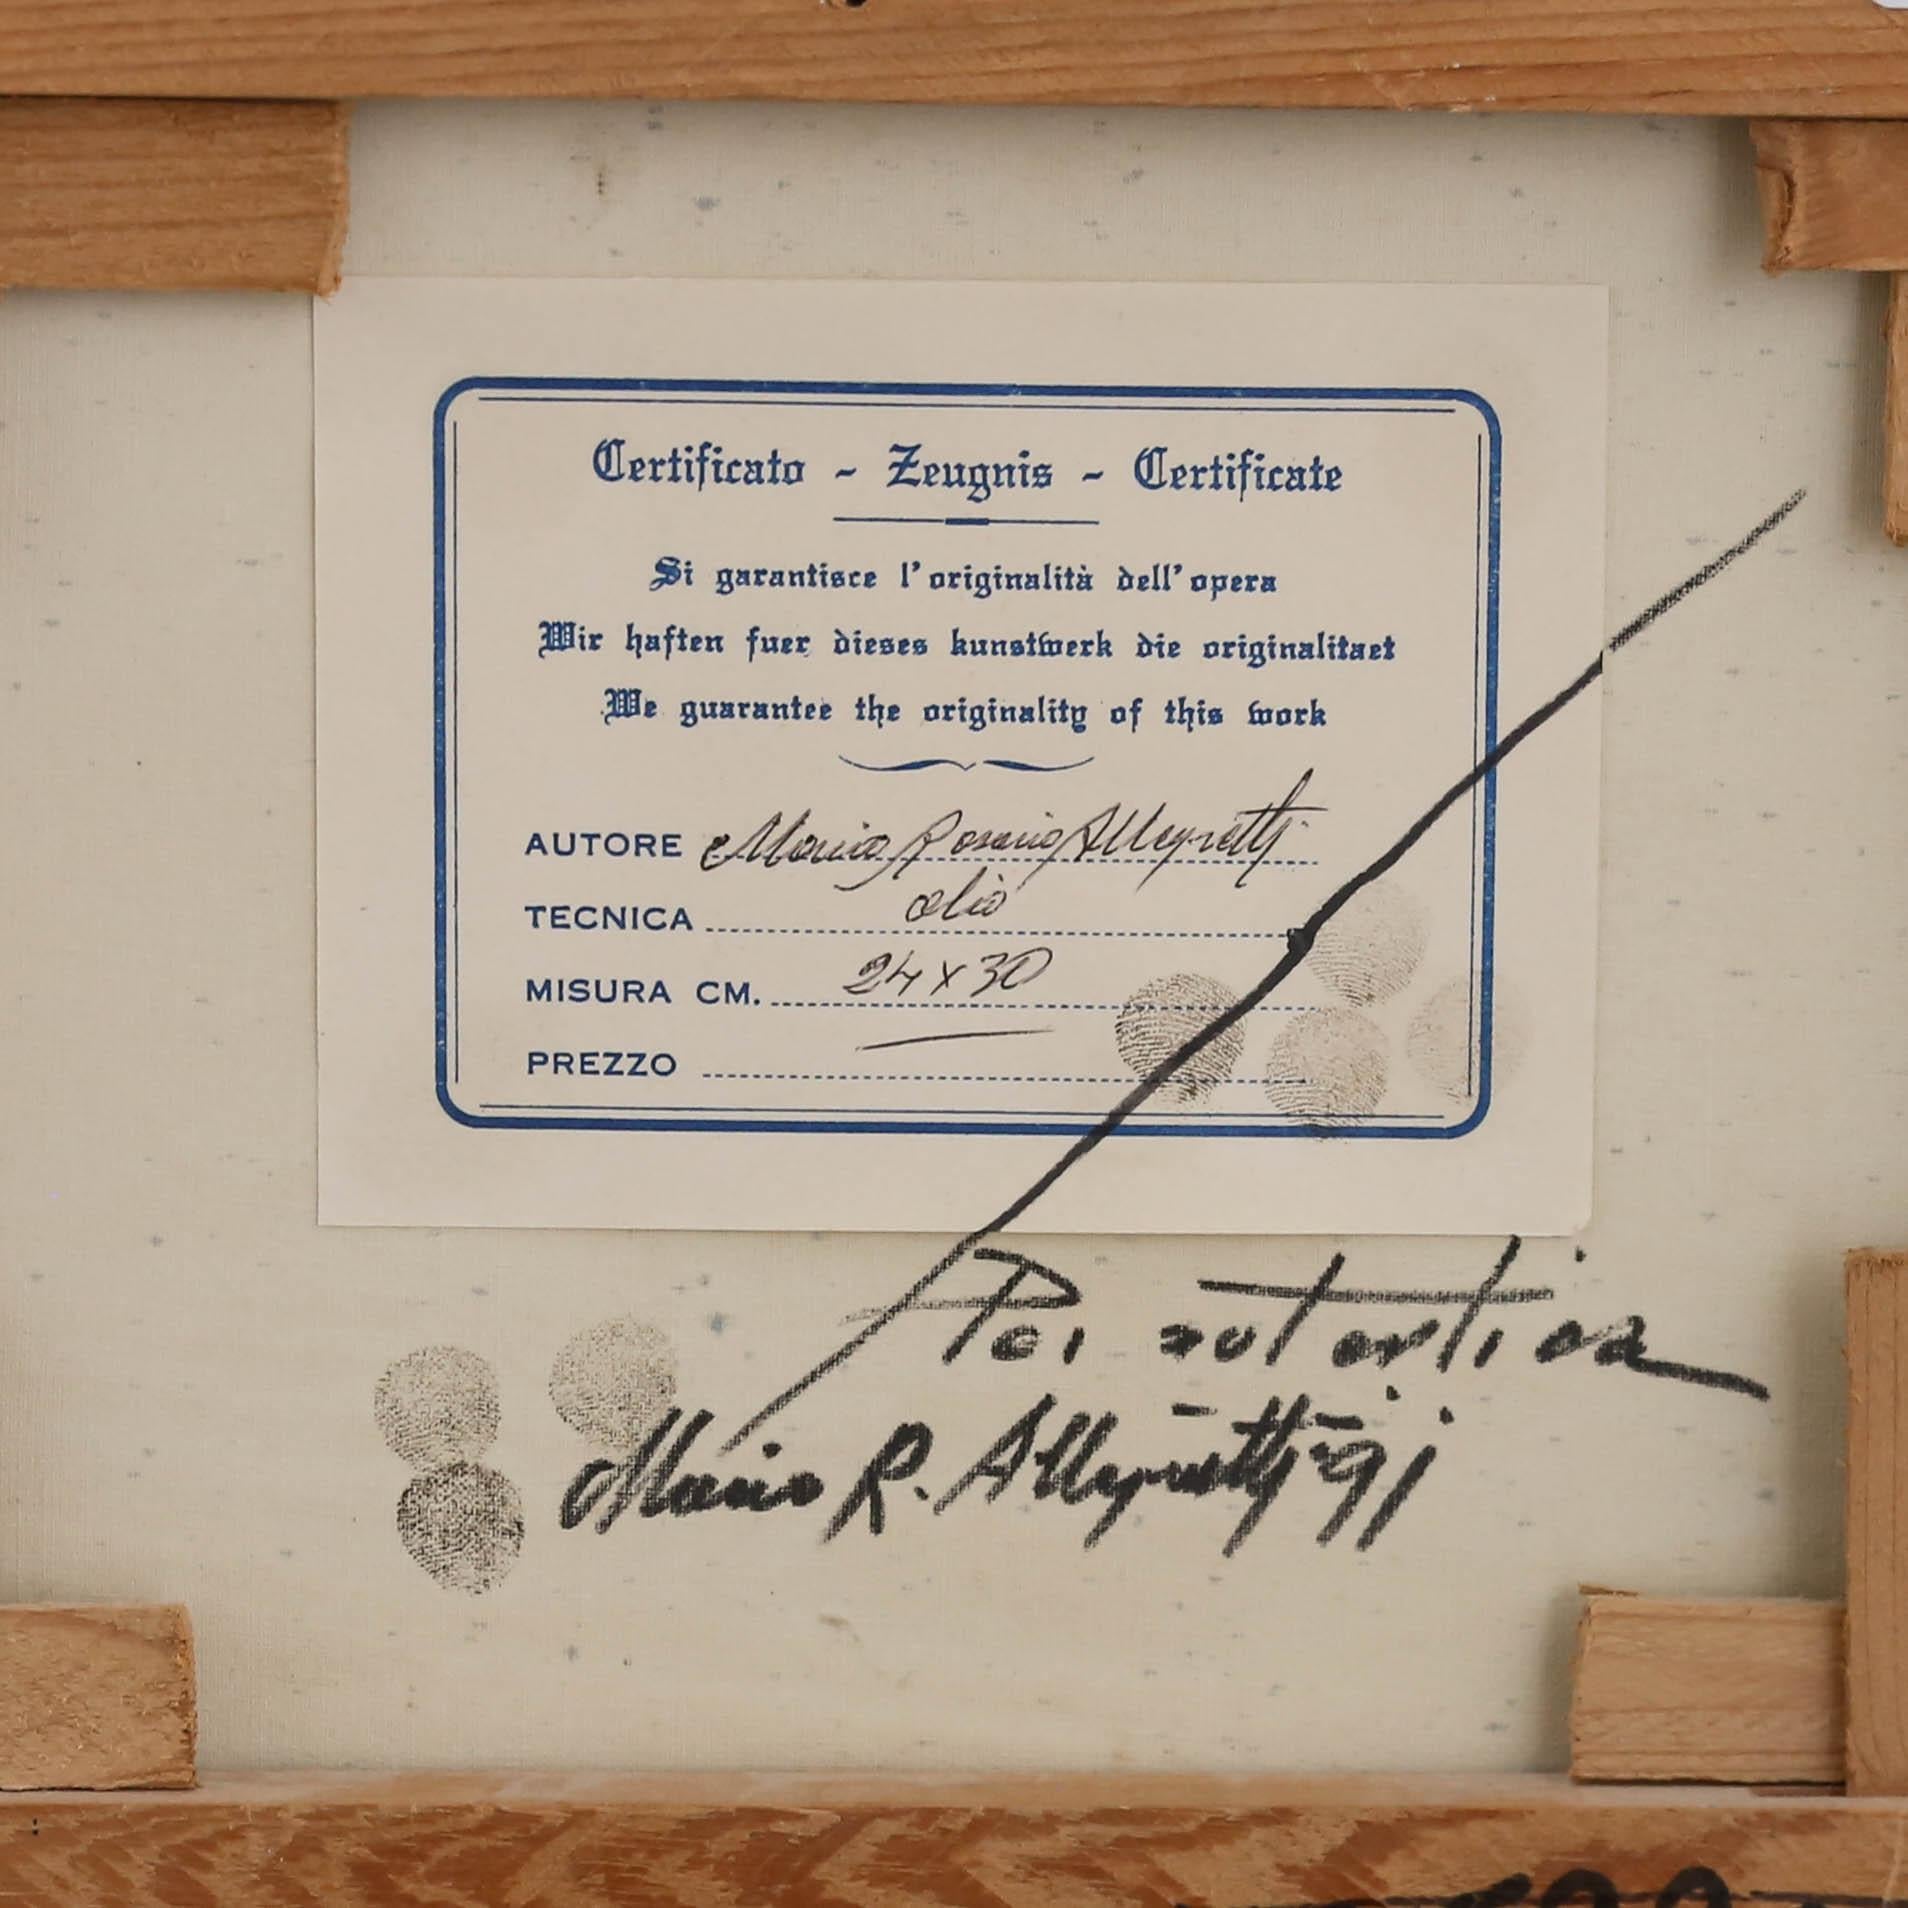 Certificato - Zeugnis - Certificate
Si garantisce l'originalità dell'opera
Wir haften fuer dieses kunstwerk die originalitaet
We guarantee the originality of this work
AUTORE Mario Rosario Allegretti
TECNICA olio
MISURA CM. 24 x 30
PREZZO
Per autentica
Mario R. Allegretti 91